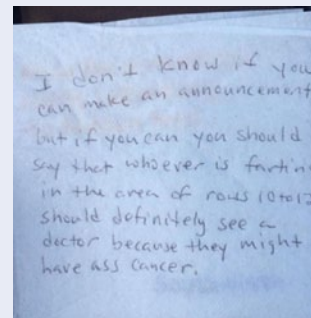 I don't know if you
can make an announcement
but if you can you should
say that whoever is farting
in the area of rows 10 to
should definitely see a
doctor because they might
have ass cancer.